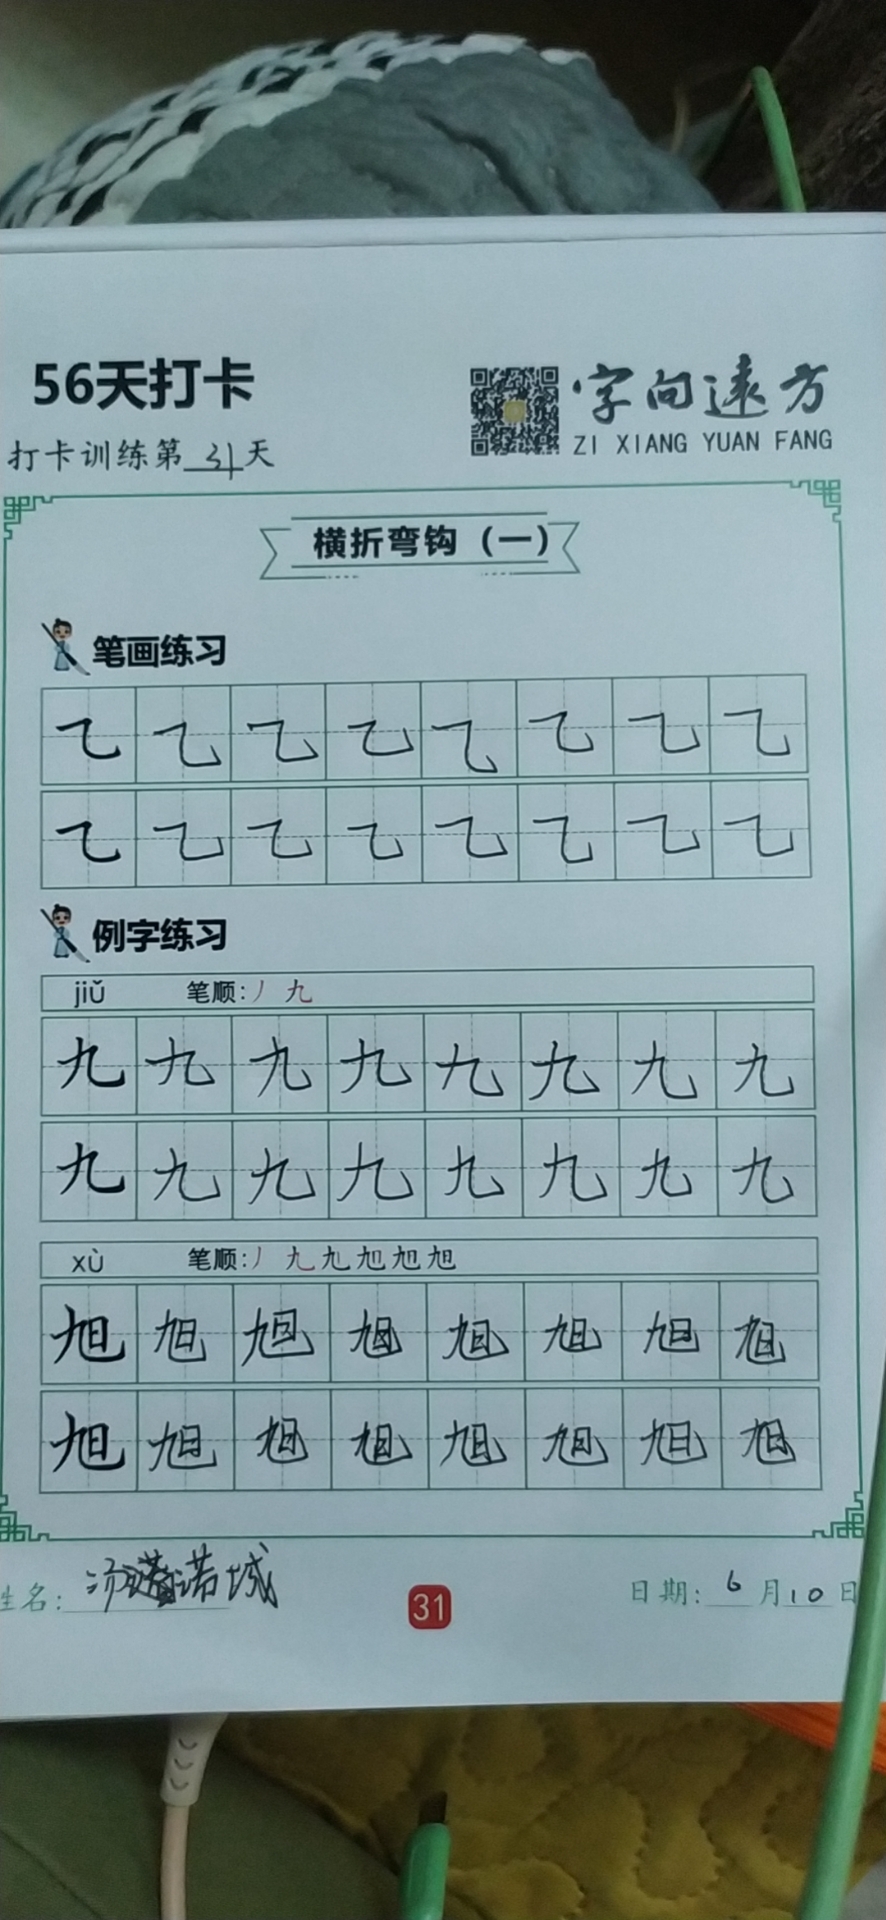 56天打卡
字向远方
ZI XIANG YUAN FANG
打卡训练第31天
横折弯钩（一）
笔画练习
㇈㇈㇈㇈㇈㇈㇈㇈
㇈㇈㇈㇈㇈㇈㇈㇈
例字练习
jiǔ 笔顺:丿九
九九九九九九九九
九九九九九九九九
xù 笔顺:丿九九旭旭旭
旭旭旭旭旭旭旭旭
旭旭旭旭旭旭旭旭
姓名: 诺城
31
日期: 6月10日